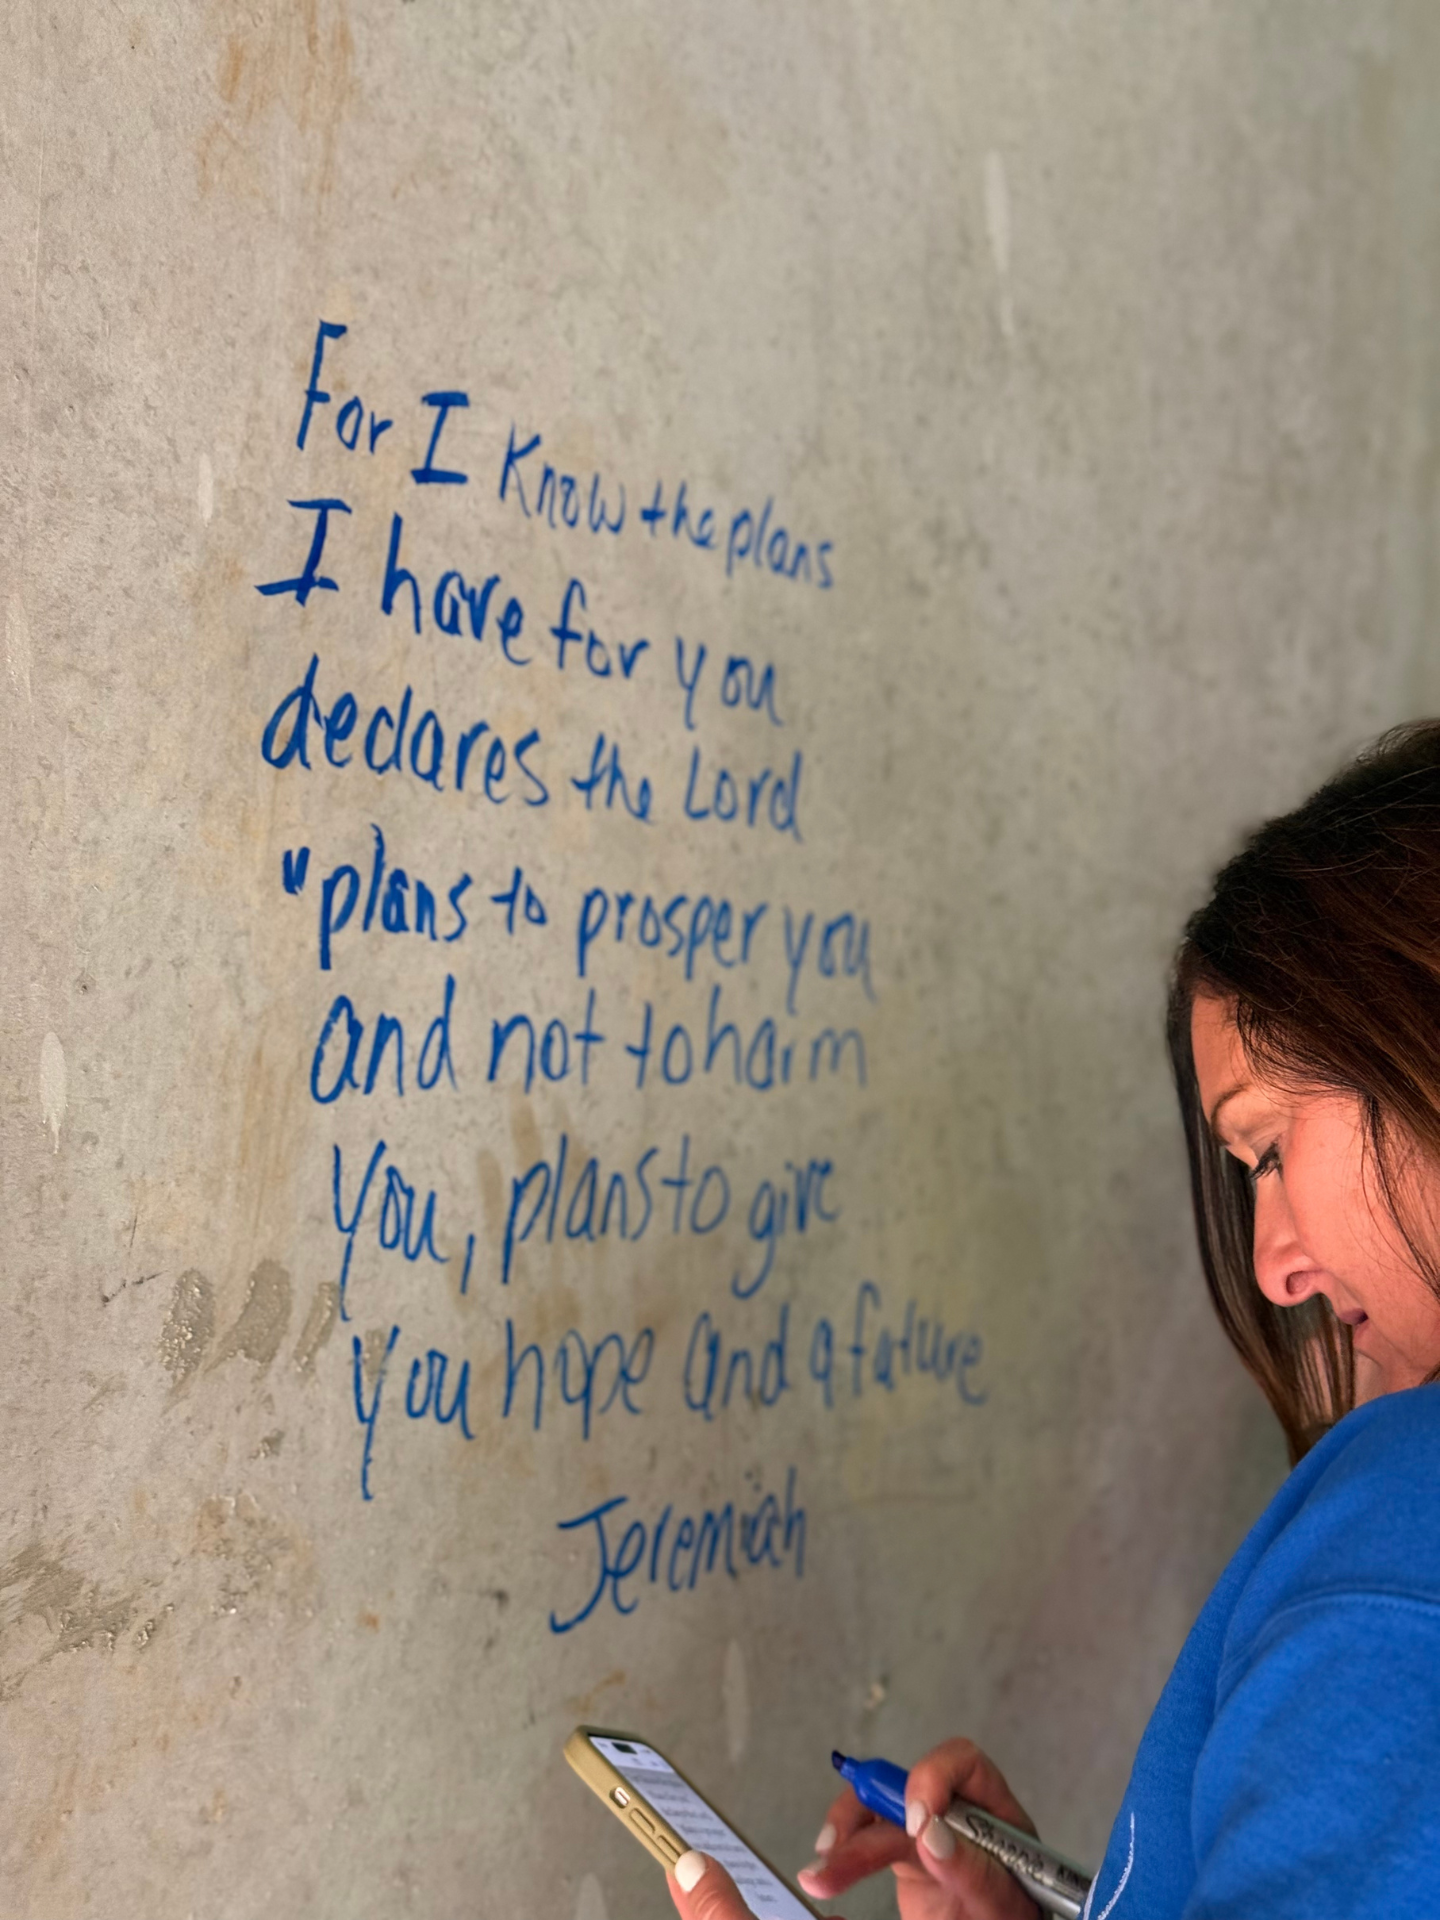 For I Know the plans
I have for you
declares the Lord
"plans to prosper you
and not to harm
you, plans to give
you hope and a future
Jeremiah
Sharpie KING